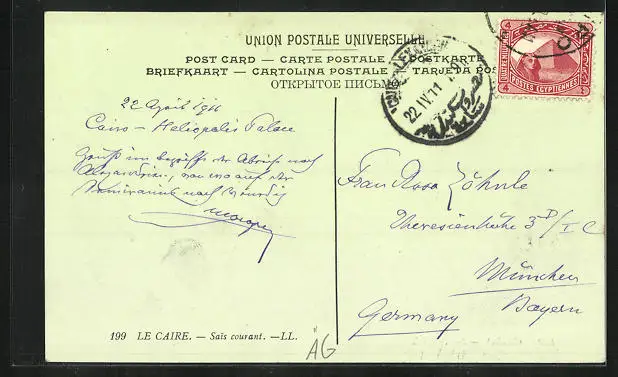 UNION POSTALE UNIVERSELLE
POST CARD — CARTE POSTALE — POSTKARTE
BRIEFKAART — CARTOLINA POSTALE — TARJETA POS
ОТКРЫТОЕ ПИСЬМО
4 4
POSTES EGYPTIENNES
22 IV 11
22 April 1911
Cairo - Heliopolis Palace
Gruß im begriffe der Abreise nach
Alexandrien, von wo auf der
nach
Frau Rosa
Theresienhöhe 3 D/I C
München
Bayern
Germany
199 LE CAIRE. — Saïs courant. — LL.
ÄG